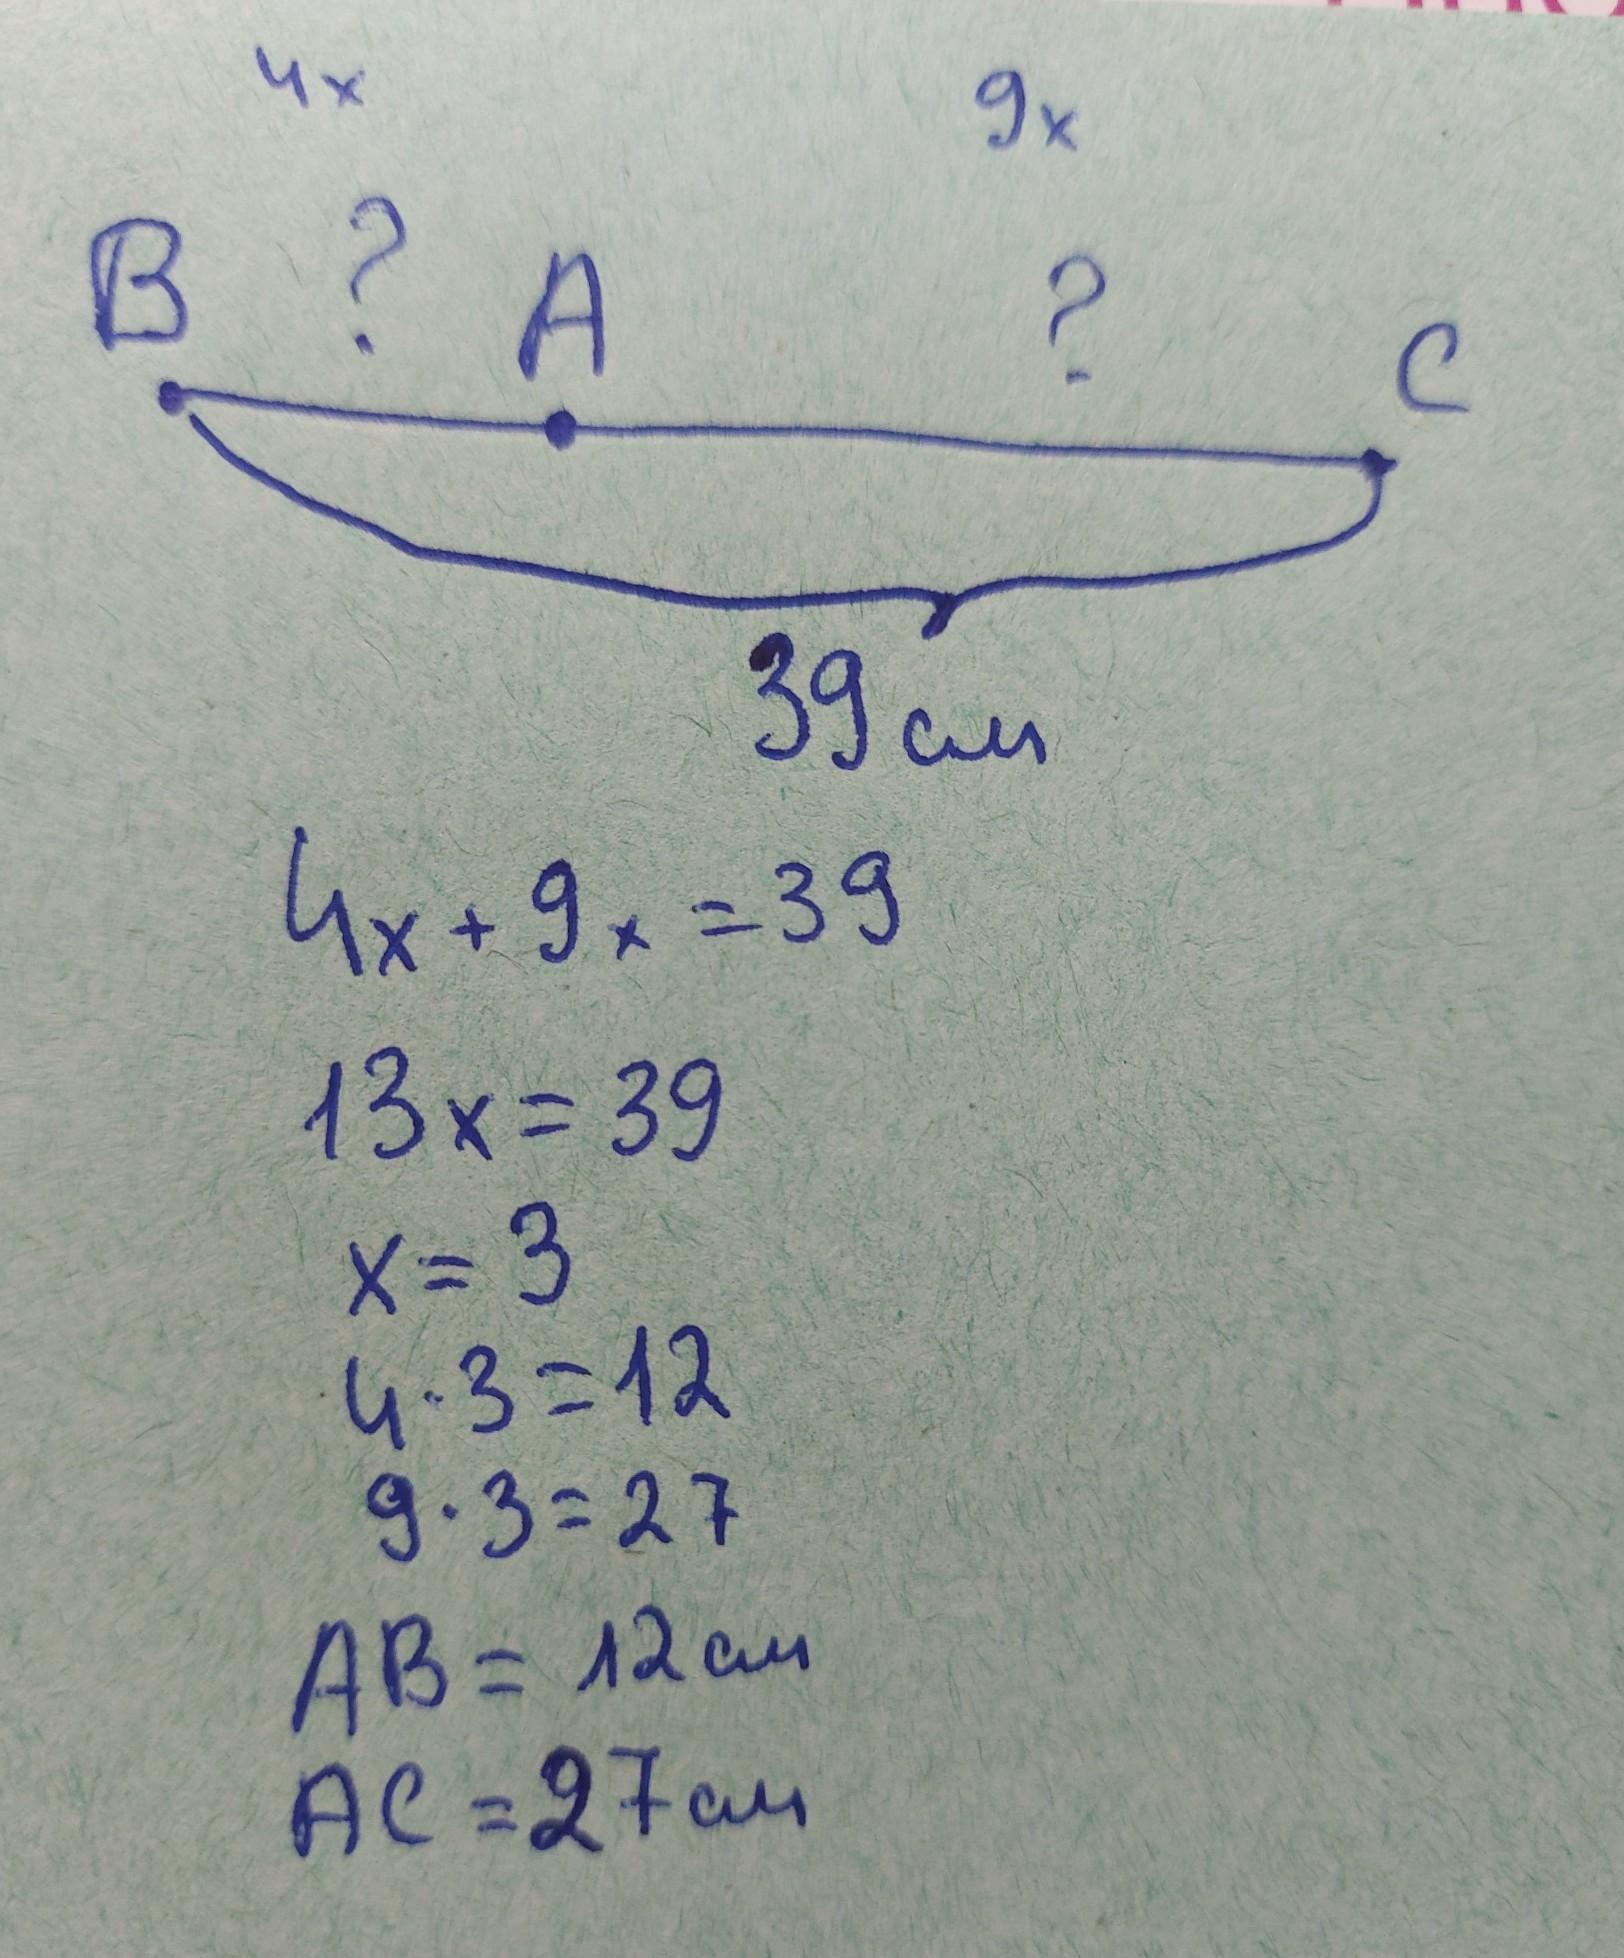 4x 9x
B ? A ? C
39 см
4x + 9x = 39
13x = 39
x = 3
4 · 3 = 12
9 · 3 = 27
AB = 12 см
AC = 27 см